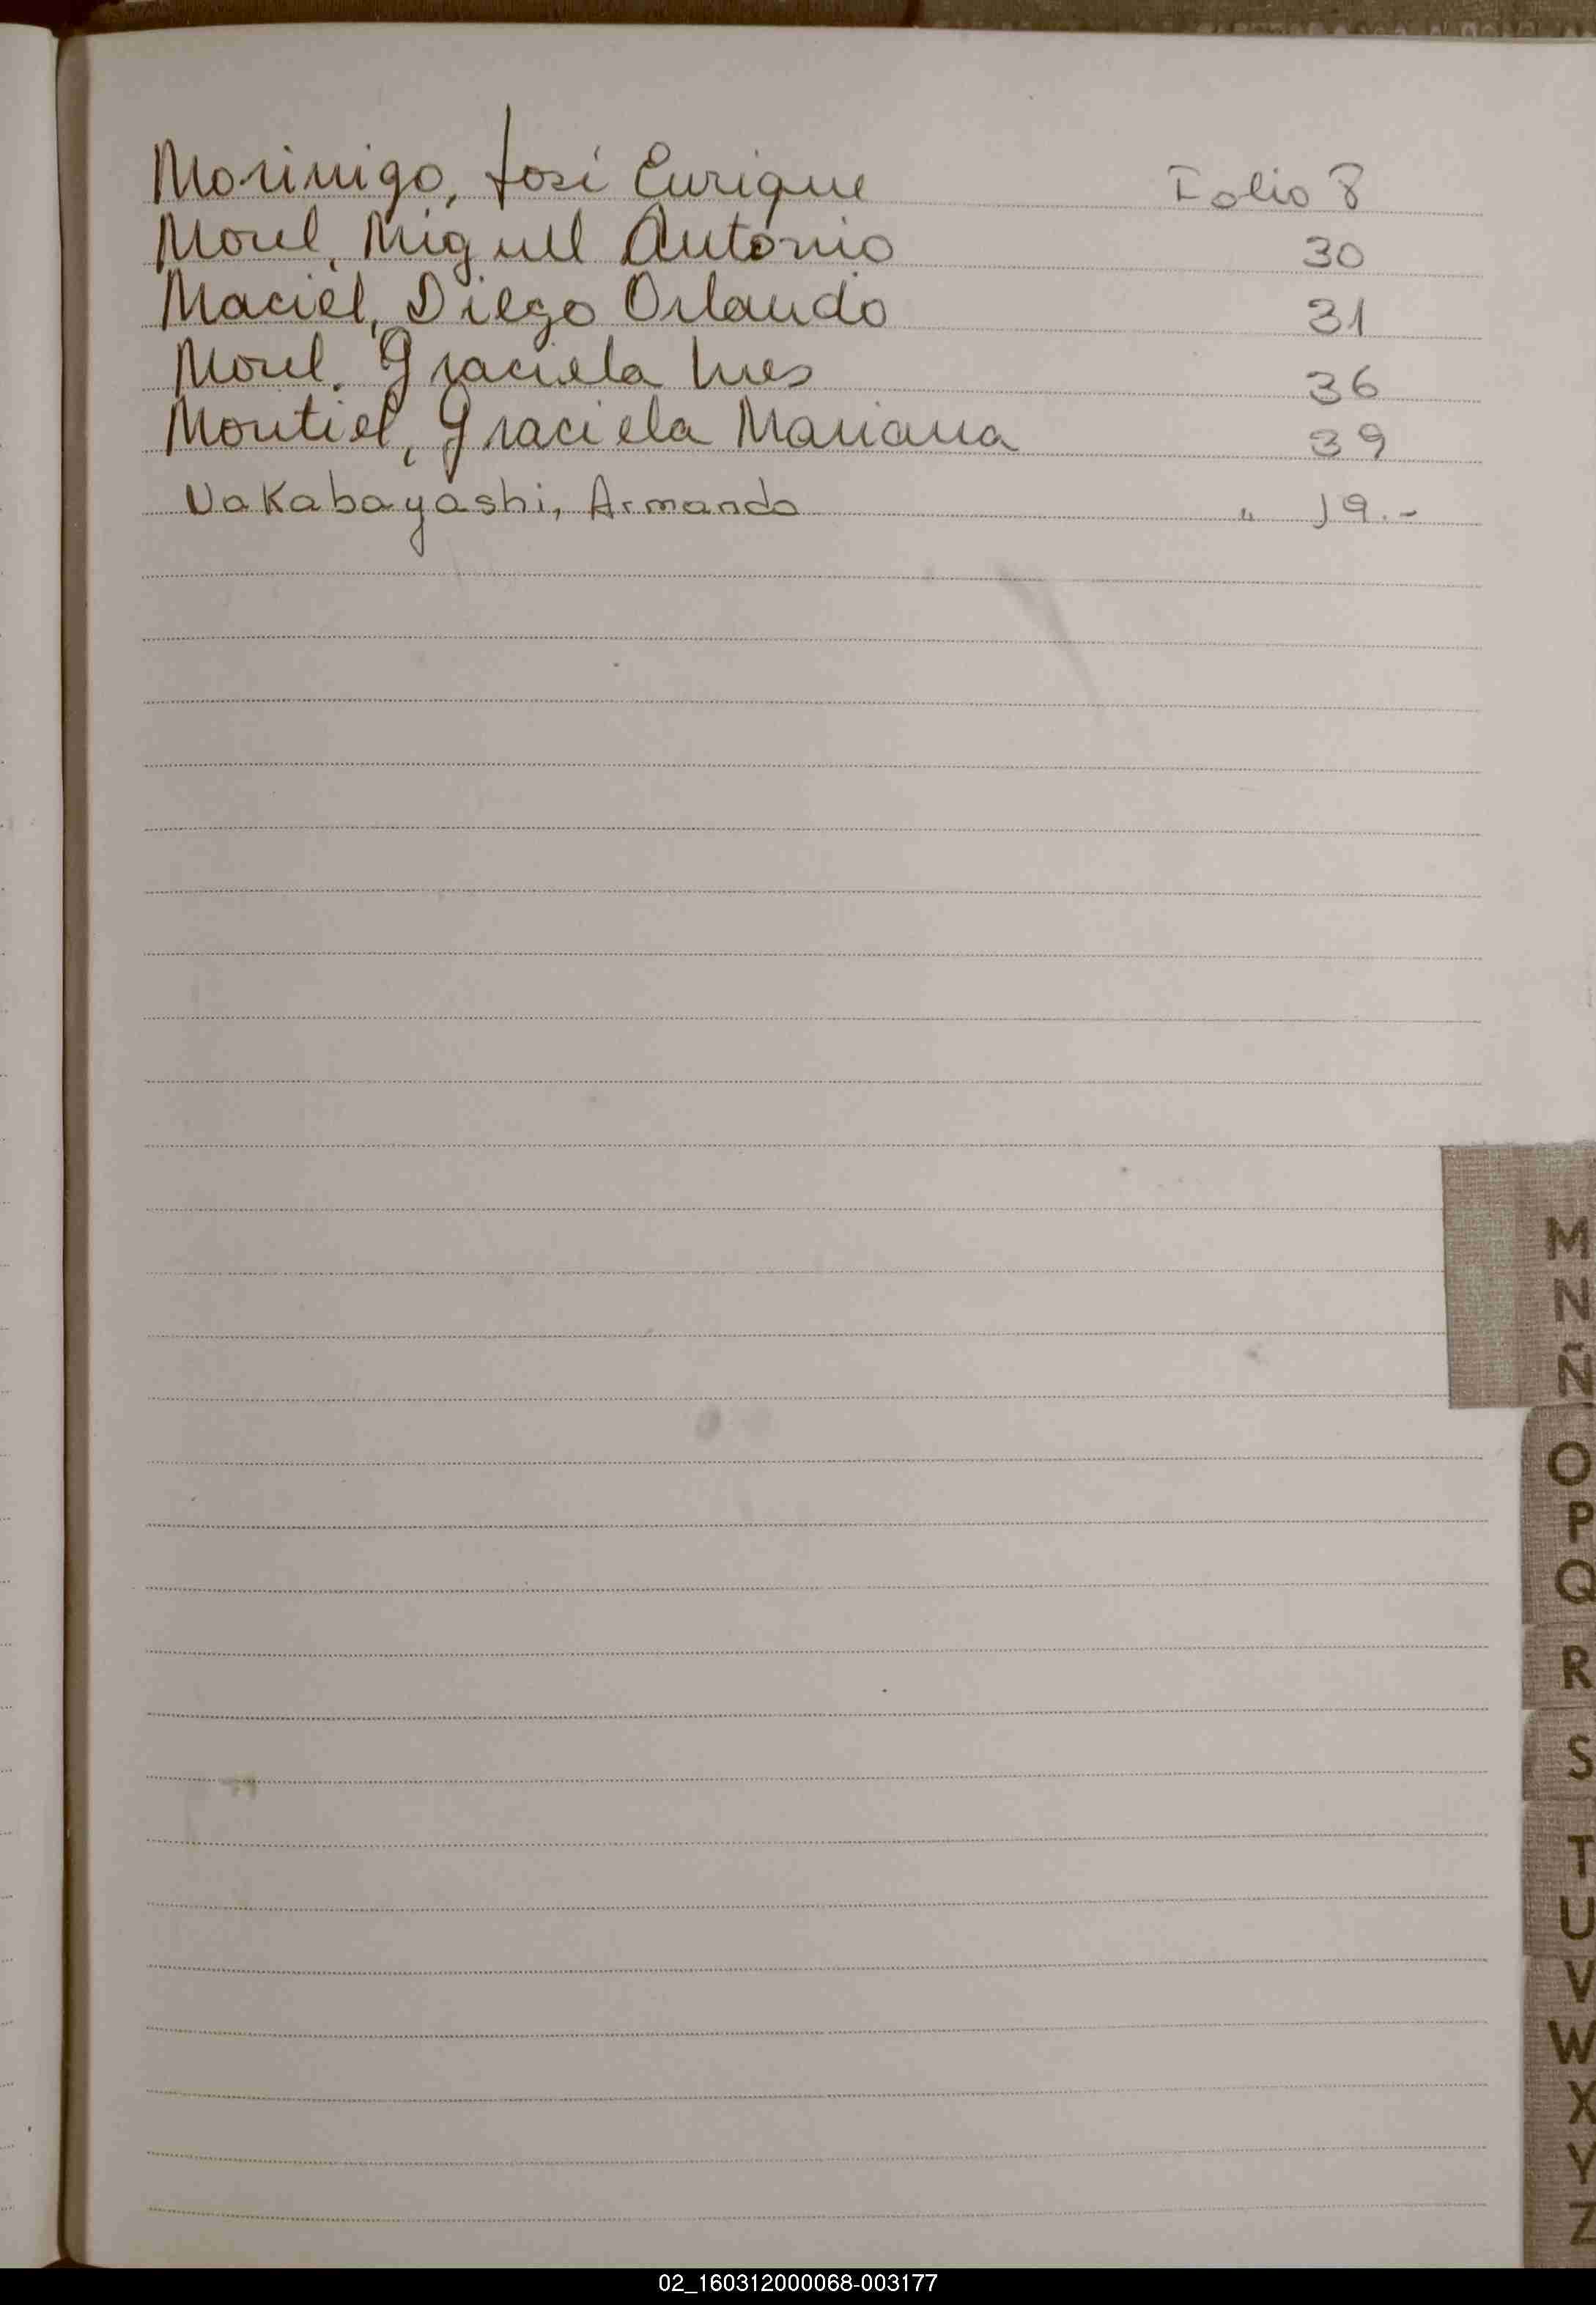 Morinigo, José Enrique Folio 8
Morel, Miguel Antonio 30
Maciel, Diego Orlando 31
Morel, Graciela Ines 36
Montiel, Graciela Mariana 39
Nakabayashi, Armando " 19.-
M
N
Ñ
O
P
Q
R
S
T
U
V
W
X
Y
Z
02_160312000068-003177